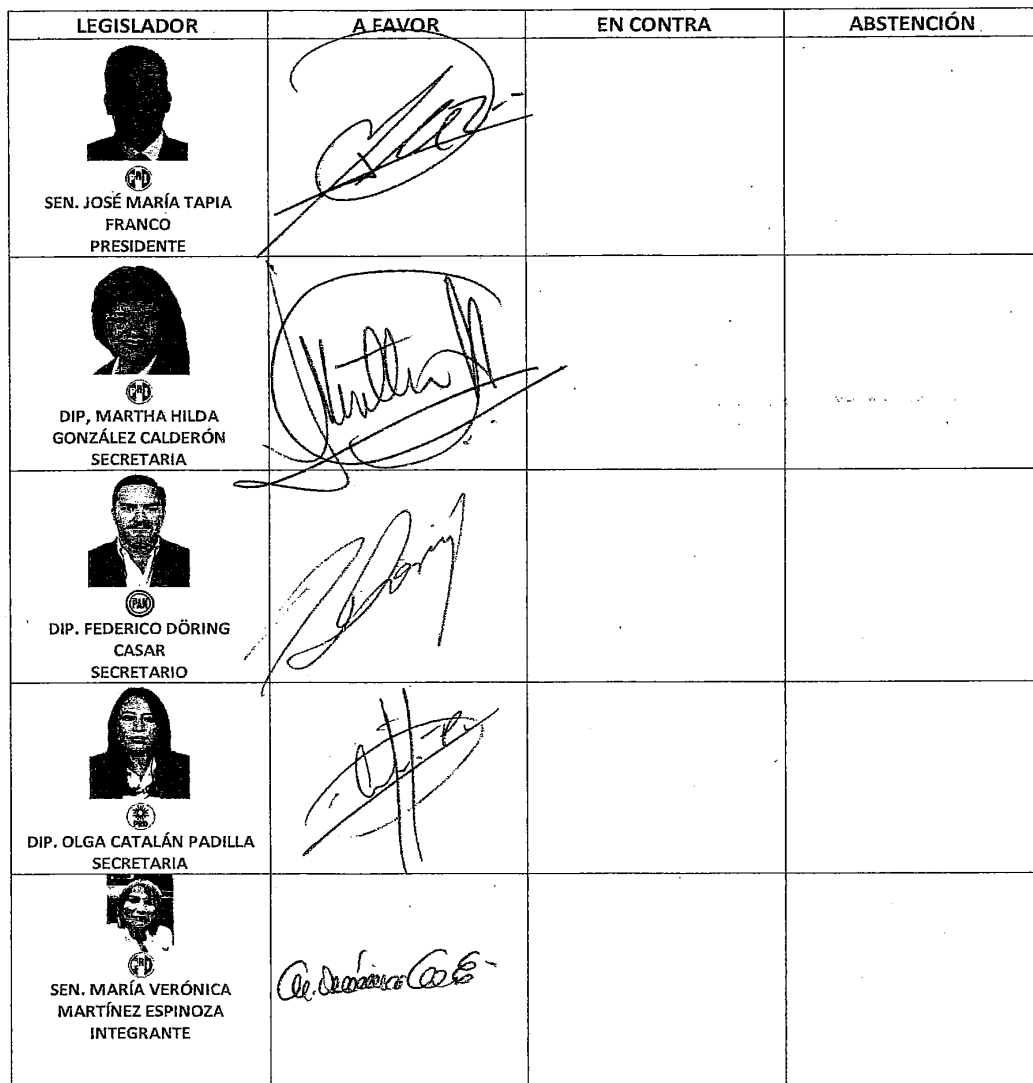 LEGISLADOR A FAVOR EN CONTRA ABSTENCIÓN
PRI
SEN. JOSÉ MARÍA TAPIA
FRANCO
PRESIDENTE
PRI
DIP, MARTHA HILDA
GONZÁLEZ CALDERÓN
SECRETARIA
PAN
DIP. FEDERICO DÖRING
CASAR
SECRETARIO
PRD
DIP. OLGA CATALÁN PADILLA
SECRETARIA
PRI
SEN. MARÍA VERÓNICA
MARTÍNEZ ESPINOZA
INTEGRANTE